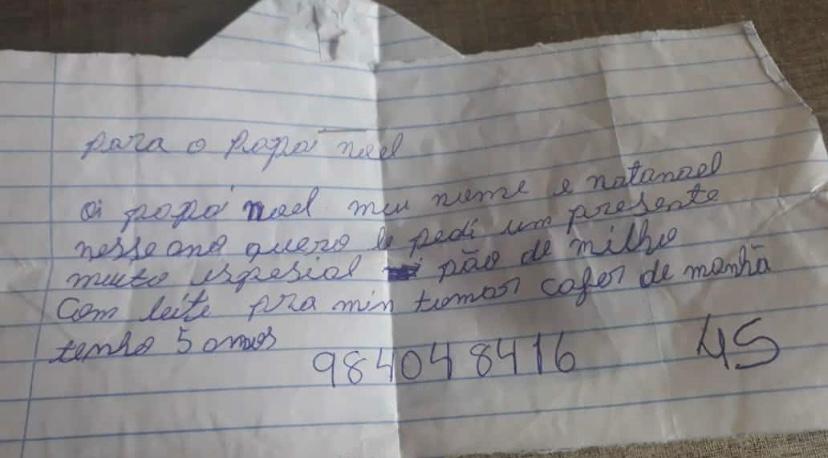 para o Papá noel
oi papá noel meu nome e natanael
nesse ano quero le pedi um presente
muito espesial pão de milho
Com leite pra min tomar cafer de manhã
tenho 5 anos
984048416 45